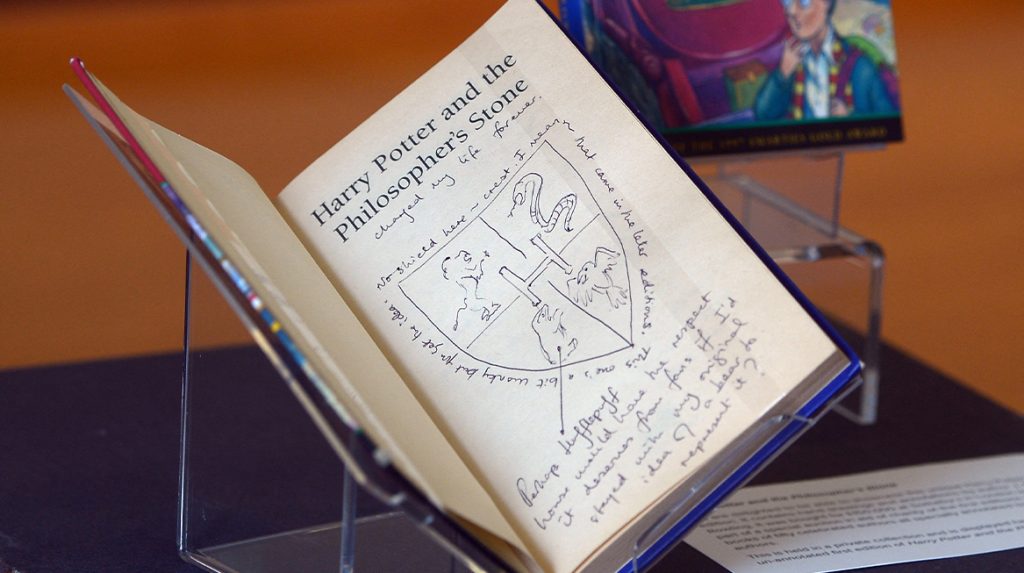 Harry Potter and the
Philosopher's Stone
changed my life forever.
No shield here – crest. I mean,
that came in the later editions.
This one's a bit wonky but you get the idea!
H
Perhaps Hufflepuff
house would have the respect
it deserves from fans if I'd
stayed with my original
idea of a bear to
represent it?
THE 1997 SMARTIES GOLD AWARD
and the Philosopher's Stone
part of a
books of fifty
authors.
This is held in a private collection and displayed
un-annotated first edition of Harry Potter and